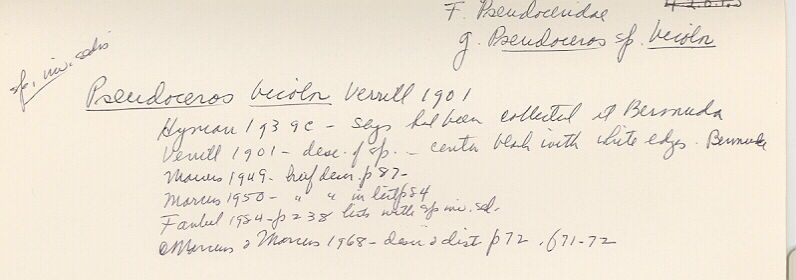 F. Pseudoceridae
g. Pseudoceros sp. bicolor
sp. inv. sedis
Pseudoceros bicolor Verrill 1901
Hyman 1939c - says had been collected at Bermuda
Verrill 1901 - desc. of sp. - center black with white edges. Bermuda
Marcus 1949 - brief descr. p 87-
Marcus 1950 - " " in list p 84
Faubel 1984 - p 238 lists with sp inv. sed.
Marcus & Marcus 1968 - descr & dist p 72, f 71-72